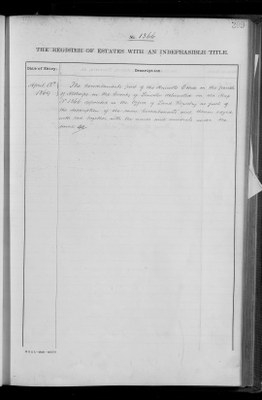 No. 1366
THE REGISTER OF ESTATES WITH AN INDEFEASIBLE TITLE.
Date of Entry.
Description.
April 15th The hereditaments part of the Manor in the Parish
1869 of in the County of delineated on the Map
No 1366 deposited in the Office of Land Registry as part of
the description of the same hereditaments and thereon edged
with red together with the mines and minerals under the
same